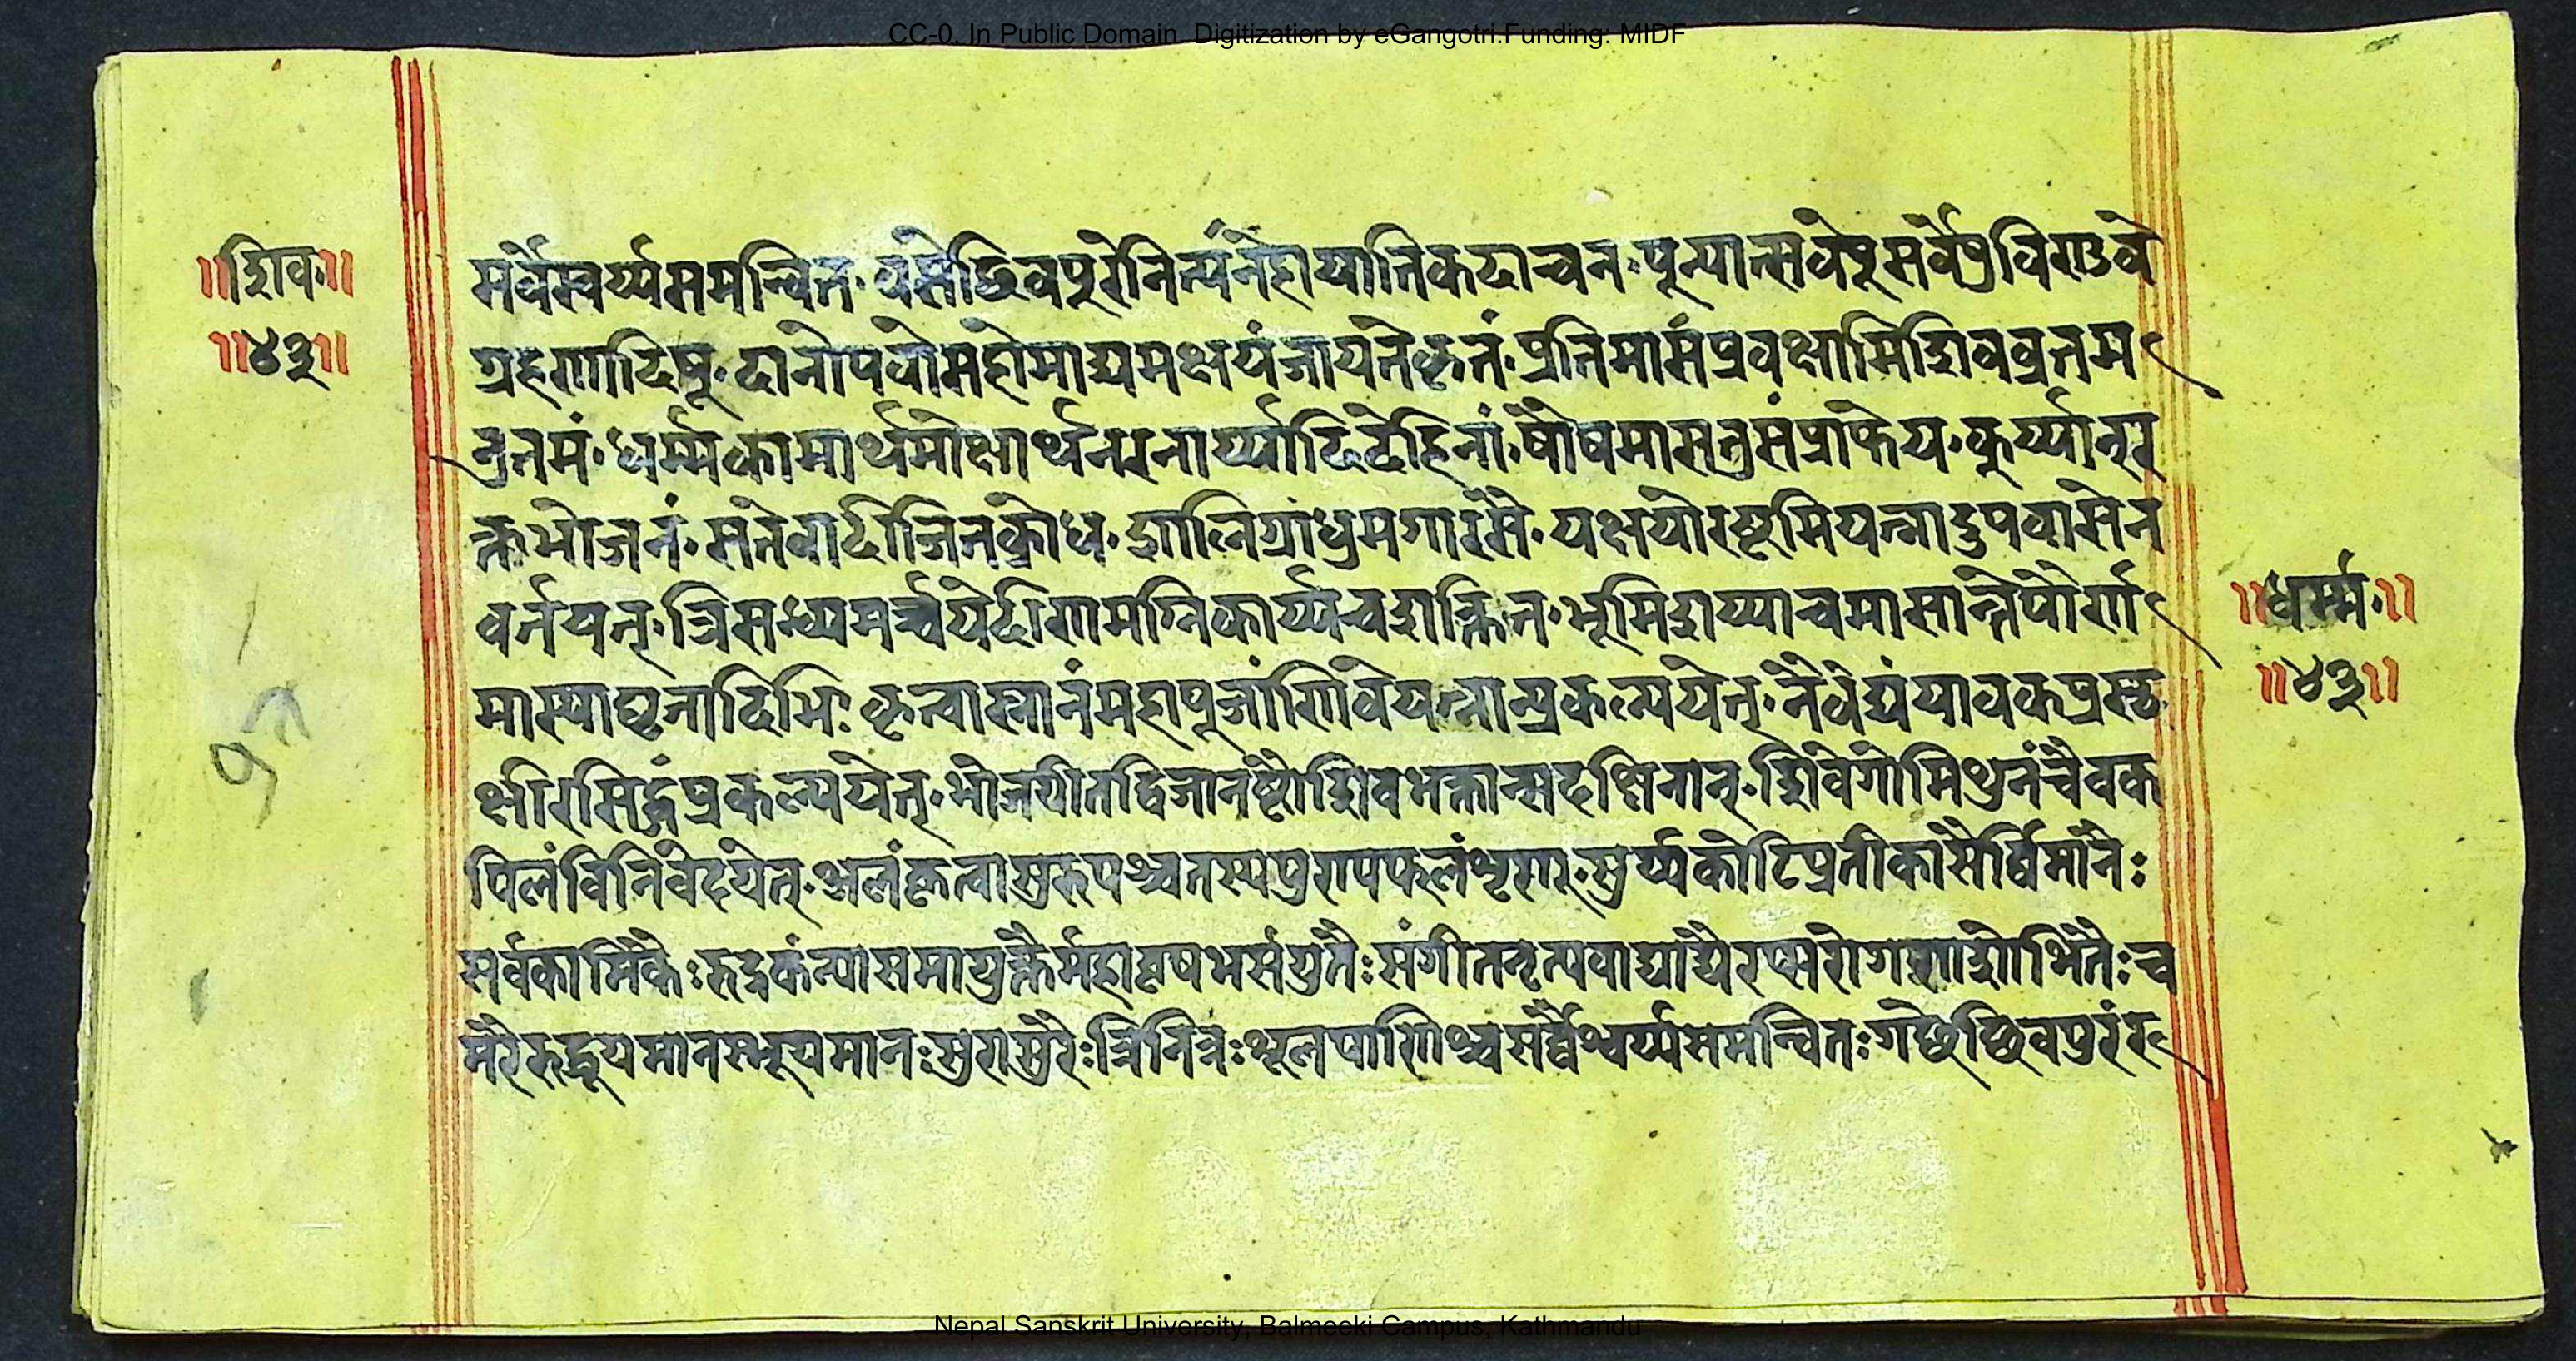 CC-0. In Public Domain. Digitization by eGangotri.Funding: MIDF
॥शिव॥
॥४३॥
सर्वैस्वर्य्यसमन्वित वसेछिवपुरेनित्यंनेहायातिकदाचन पून्यान्सर्वेषूसर्वेप्रविशुवे
ग्रहणादिषू दानोपवोसहोमाद्यमक्षयंजायतेकृतं प्रतिमासंप्रवक्षामिशिवव्रतम
नुतमं धर्म्मकामार्थमोक्षार्थनरनार्य्यादिदेहिनां षौषमासतुसंप्राप्तेय कुर्य्यान्न
क्तभोजनं सतेवादीजितक्रोध शालिग्रांधुमगारसै पक्षयोरष्टमियत्नादुपवासेन
वर्तयत् त्रिसन्ध्यमर्च्चयेदीशमग्निकार्य्यचशक्तित भूमिशय्याचमासान्तेपौर्णा
मास्याघृतादिभिः कृत्वास्नानंमहापूजांशिवेयत्नान्प्रकल्पयेत् नैवेद्यंयावकप्रस्थ
क्षीरसिद्धंप्रकल्पयेत् भोजयीतद्विजानष्टौशिवभक्तान्सदक्षिनान् शिवेगोमिथुनंचैवक
पिलंविनिवेदयेत् अलंकृत्वासुरुपञ्चतस्यपुण्यफलंश्रृणु सुर्य्यकोटिप्रतीकासैर्विमानैः
सर्वकामिकैः रुद्रकंन्यासमायुक्तैर्महावृषभसंयुतैः संगीतनृत्यवाद्याद्यैरप्सरोगणशोभितैः च
मरैरुद्धूयमानस्भूयमानः सुरासुरैः त्रिनित्रः शूलपाणिश्चसर्वैश्वर्य्यसमन्वितः गछेछिवपुरंरु
॥धर्म्म॥
॥४३॥
Nepal Sanskrit University, Balmeeki Campus, Kathmandu